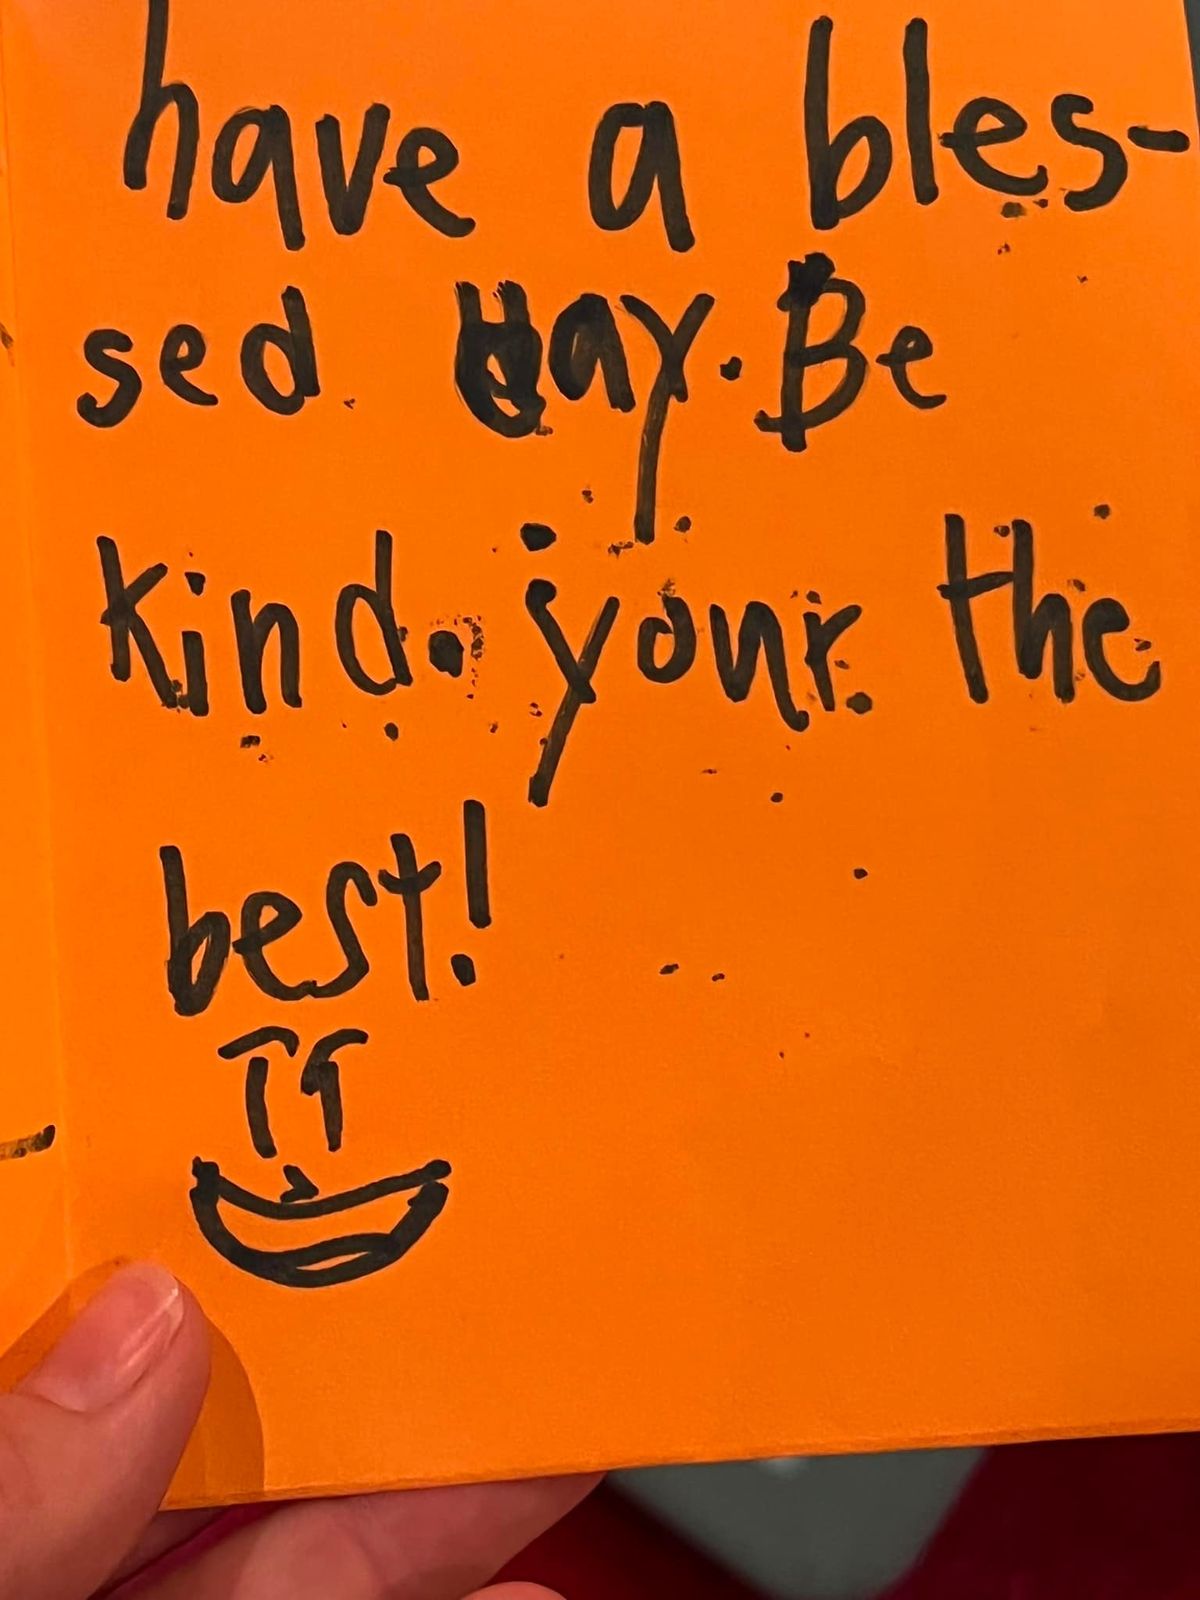 have a bles-
sed day. Be
kind. your the
best!